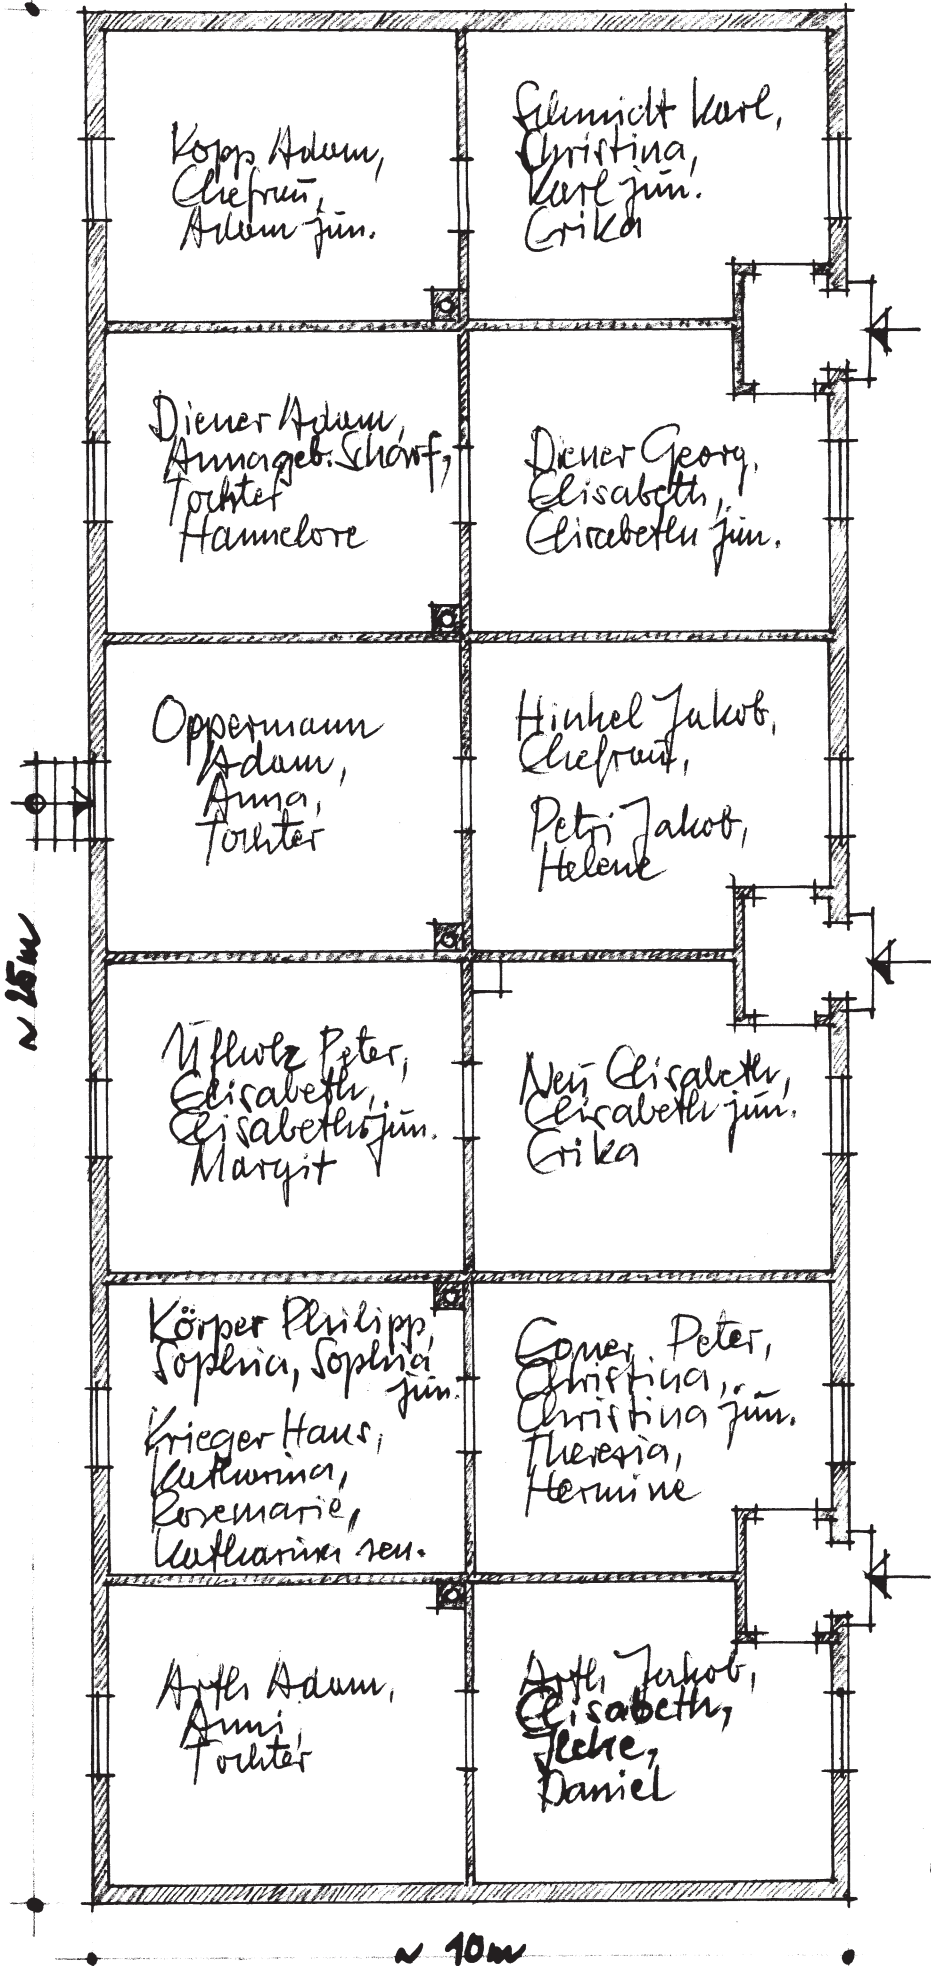 Kopp Adam,
Ehefrau,
Adam jun.
Schmidt Karl,
Christina,
Karl jun.
Erika
Diener Adam,
Anna geb. Scharf,
Tochter
Hannelore
Diener Georg,
Elisabeth,
Elisabeth jun.
Oppermann
Adam,
Anna,
Tochter
Hinkel Jakob,
Ehefrau,
Petri Jakob,
Helene
~ 25m
Ufholz Peter,
Elisabeth,
Elisabeth jun.
Margit
Neu Elisabeth,
Elisabeth jun.
Erika
Körper Philipp,
Sophia, Sophia
jun.
Krieger Hans,
Katharina,
Rosemarie,
Katharina sen.
Peter,
Christina,
Christina jun.
Theresia,
Hermine
Arth Adam,
Anni,
Tochter
Arth Jakob,
Elisabeth,
Daniel
~ 10m